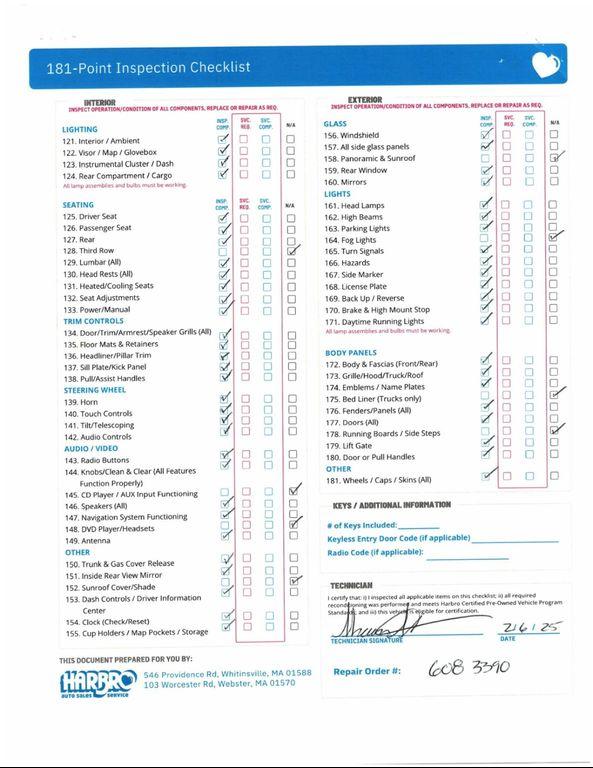 181-Point Inspection Checklist
INTERIOR
INSPECT OPERATION/CONDITION OF ALL COMPONENTS, REPLACE OR REPAIR AS REQ.
LIGHTING
INSP. COMP. SVC. REQ. SVC. COMP. N/A
121. Interior / Ambient
122. Visor / Map / Glovebox
123. Instrumental Cluster / Dash
124. Rear Compartment / Cargo
All lamp assemblies and bulbs must be working.
SEATING
INSP. COMP. SVC. REQ. SVC. COMP. N/A
125. Driver Seat
126. Passenger Seat
127. Rear
128. Third Row
129. Lumbar (All)
130. Head Rests (All)
131. Heated/Cooling Seats
132. Seat Adjustments
133. Power/Manual
TRIM CONTROLS
134. Door/Trim/Armrest/Speaker Grills (All)
135. Floor Mats & Retainers
136. Headliner/Pillar Trim
137. Sill Plate/Kick Panel
138. Pull/Assist Handles
STEERING WHEEL
139. Horn
140. Touch Controls
141. Tilt/Telescoping
142. Audio Controls
AUDIO / VIDEO
143. Radio Buttons
144. Knobs/Clean & Clear (All Features
Function Properly)
145. CD Player / AUX Input Functioning
146. Speakers (All)
147. Navigation System Functioning
148. DVD Player/Headsets
149. Antenna
OTHER
150. Trunk & Gas Cover Release
151. Inside Rear View Mirror
152. Sunroof Cover/Shade
153. Dash Controls / Driver Information
Center
154. Clock (Check/Reset)
155. Cup Holders / Map Pockets / Storage
THIS DOCUMENT PREPARED FOR YOU BY:
HARBRO
AUTO SALES & SERVICE
546 Providence Rd, Whitinsville, MA 01588
103 Worcester Rd, Webster, MA 01570
EXTERIOR
INSPECT OPERATION/CONDITION OF ALL COMPONENTS, REPLACE OR REPAIR AS REQ.
GLASS
INSP. COMP. SVC. REQ. SVC. COMP. N/A
156. Windshield
157. All side glass panels
158. Panoramic & Sunroof
159. Rear Window
160. Mirrors
LIGHTS
161. Head Lamps
162. High Beams
163. Parking Lights
164. Fog Lights
165. Turn Signals
166. Hazards
167. Side Marker
168. License Plate
169. Back Up / Reverse
170. Brake & High Mount Stop
171. Daytime Running Lights
All lamp assemblies and bulbs must be working.
BODY PANELS
172. Body & Fascias (Front/Rear)
173. Grille/Hood/Truck/Roof
174. Emblems / Name Plates
175. Bed Liner (Trucks only)
176. Fenders/Panels (All)
177. Doors (All)
178. Running Boards / Side Steps
179. Lift Gate
180. Door or Pull Handles
OTHER
181. Wheels / Caps / Skins (All)
KEYS / ADDITIONAL INFORMATION
# of Keys Included:
Keyless Entry Door Code (if applicable)
Radio Code (if applicable):
TECHNICIAN
I certify that: i) I inspected all applicable items on this checklist; ii) all required
reconditioning was performed and meets Harbro Certified Pre-Owned Vehicle Program
Standards; and iii) this vehicle is eligible for certification.
2/6/25
TECHNICIAN SIGNATURE DATE
Repair Order #: 608 3390